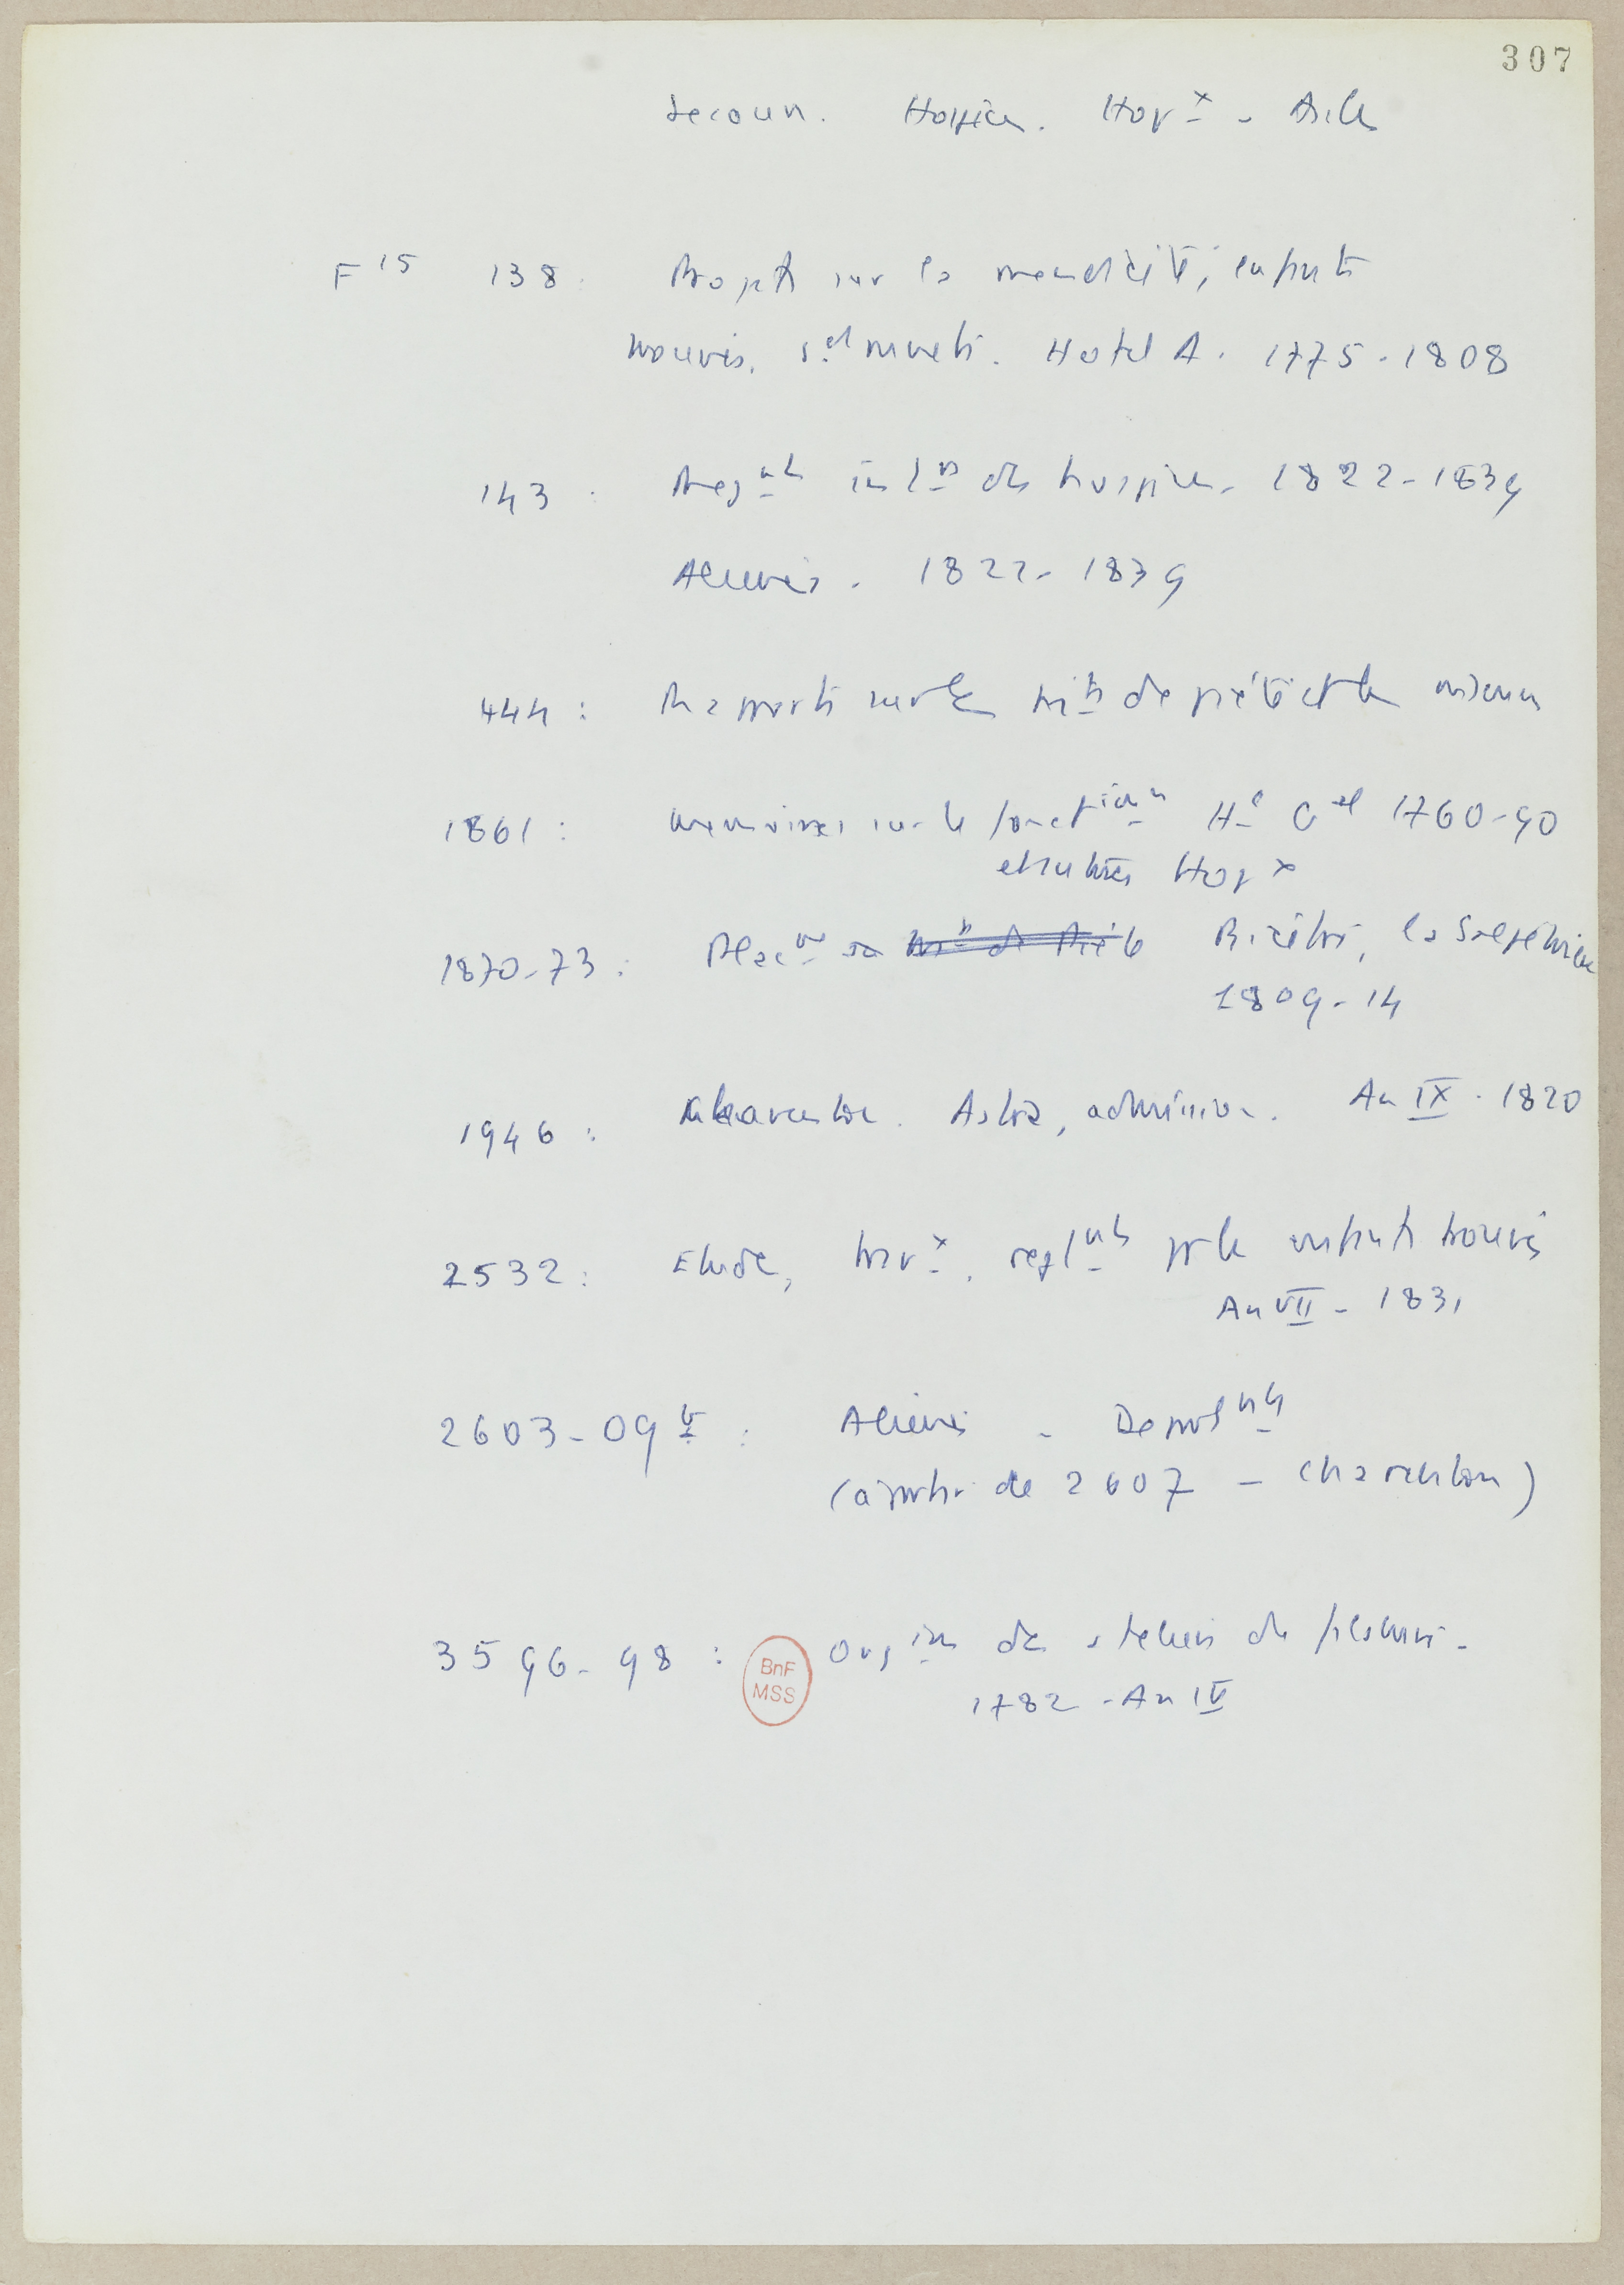 307
Secours. Hospices. Hop^x - Asiles
F^15 138 : Projets sur la mendicité, enfants
trouvés, sourds muets. Hotel D. 1775-1808
143 : Reg^nts int^n des hospices. 1822-1839
Aliénés. 1822-1839
444 : Rapports sur les m^ts de piété et les
1861 : Memoires sur le fonction^n H^l G^al 1760-90
et autres Hop^x
1870-73 : Plac^mt Bicêtre, la Salpêtrière
1809-14
1946 : Charenton. Asiles, admission. An IX - 1820
2532 : Etudes, trav^x, regl^nts pr les enfants trouvés
An VII - 1831
2603-09 : Aliénés - Depouil^nts
(à partir de 2607 - Charenton)
3596-98 : Org^ion des ateliers de filature -
1782 - An IV
BnF
MSS